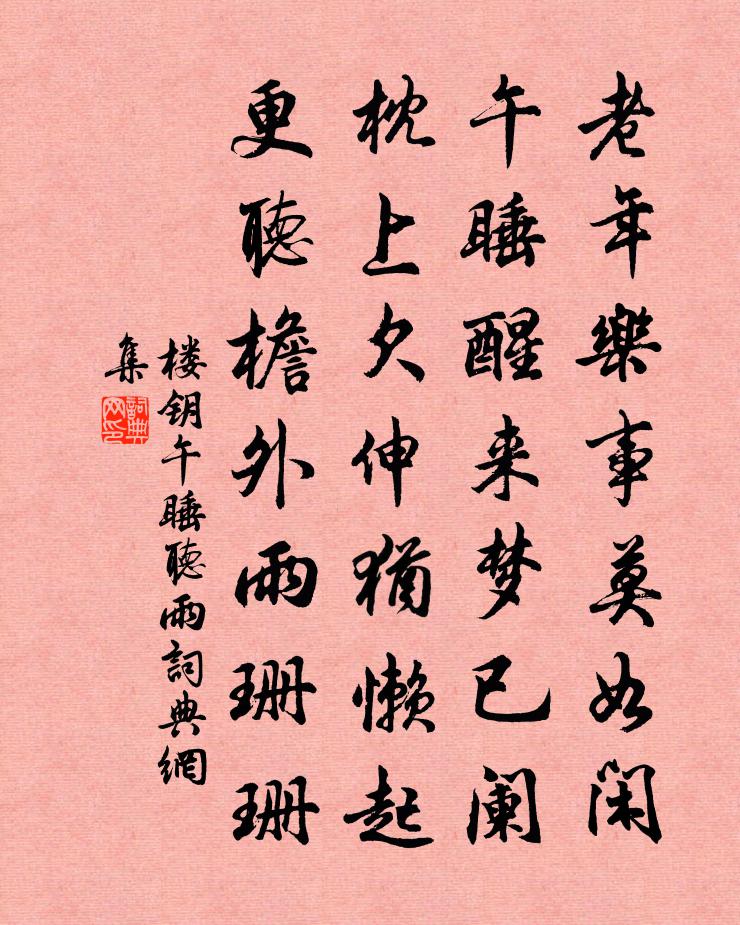 老年樂事莫如闲
午睡醒来梦已阑
枕上欠伸猶懒起
更聽檐外雨珊珊
楼钥午睡聽雨詞典網
集
詞典
网印